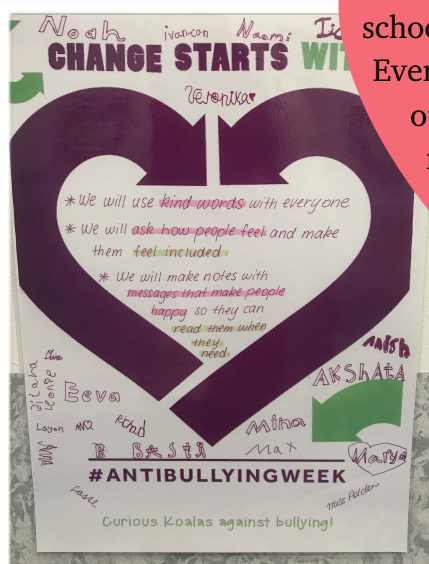 Noah ivancan Naomi
CHANGE STARTS WIT
Veronika
schoo
Ever
ou
* We will use kind words with everyone
* We will ask how people feel and make
them feel included
* We will make notes with
messages that make people
happy so they can
read them when
they
need
Anish
AKSHAtA
Eeva
Layan
Mina
Max
Marya
#ANTIBULLYINGWEEK
Miss Polden
Curious Koalas against bullying!